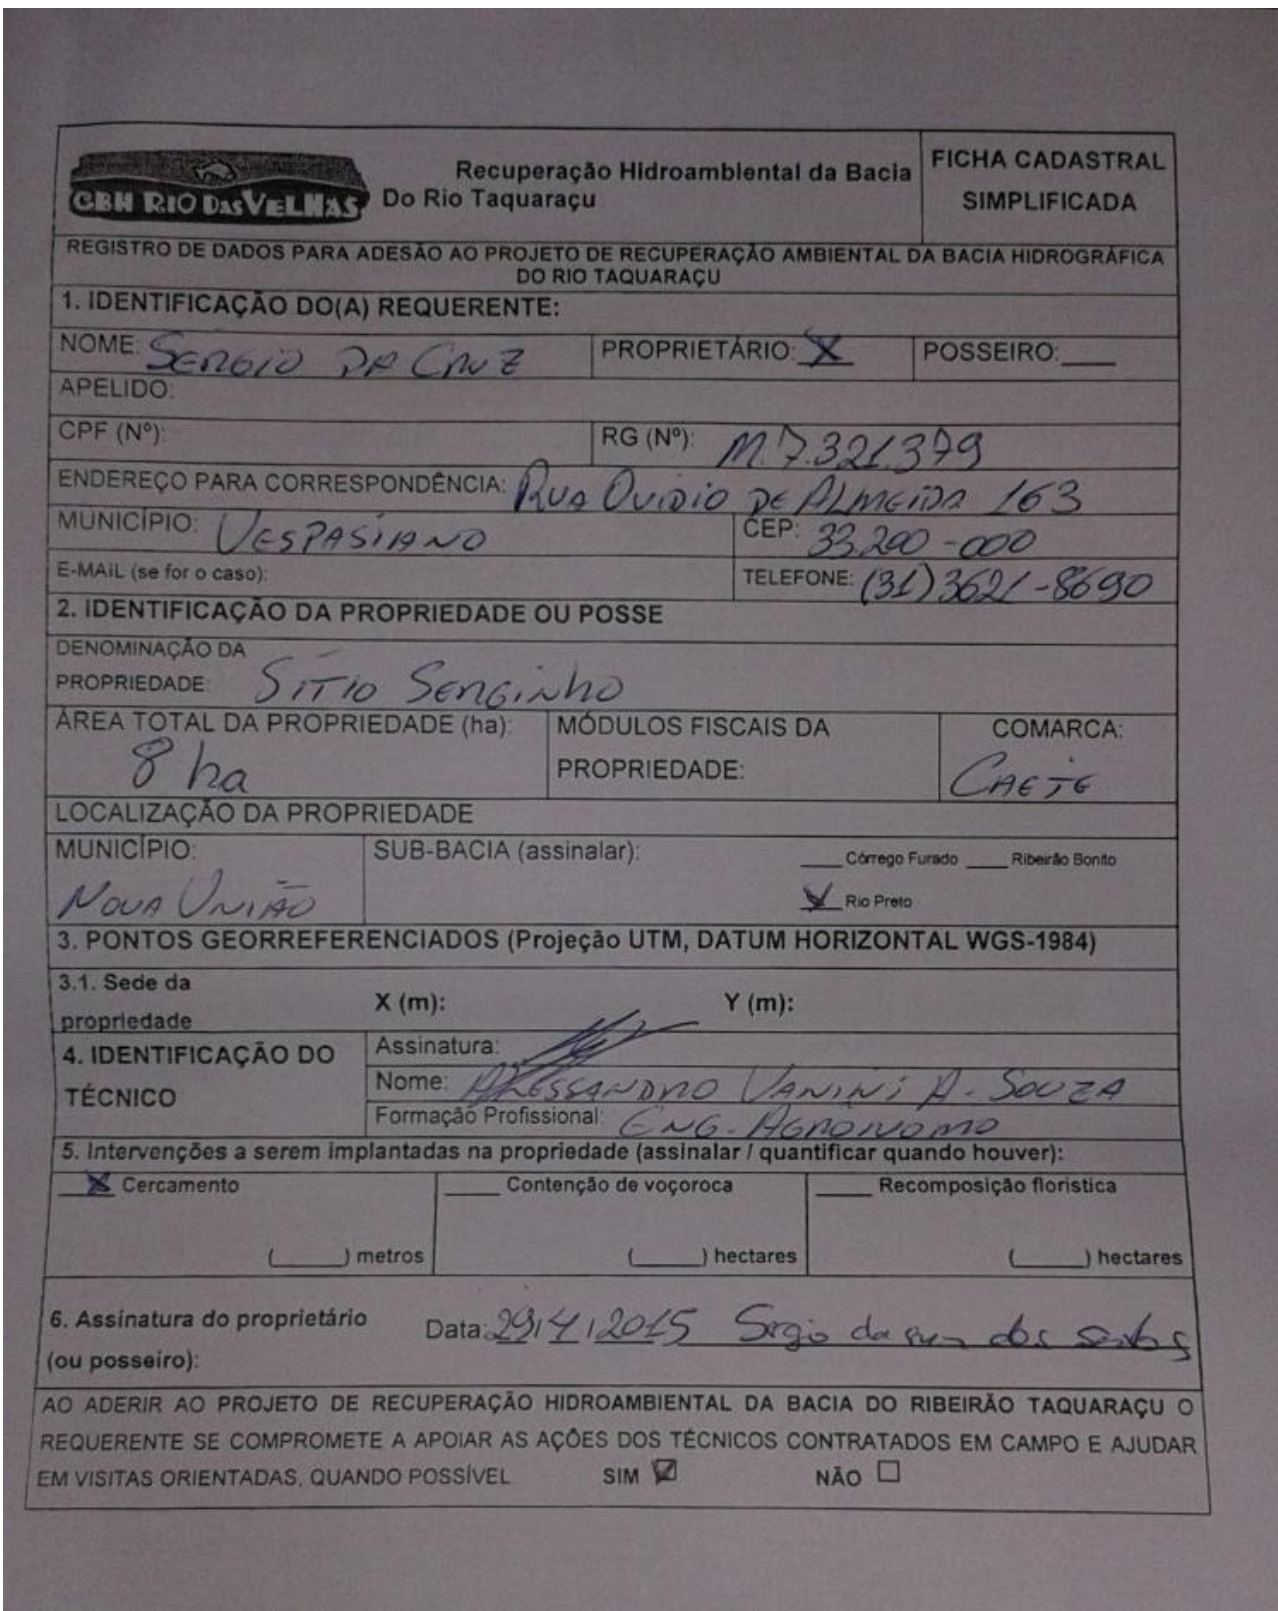 CBH RIO DAS VELHAS
Recuperação Hidroambiental da Bacia
Do Rio Taquaraçu
FICHA CADASTRAL
SIMPLIFICADA
REGISTRO DE DADOS PARA ADESÃO AO PROJETO DE RECUPERAÇÃO AMBIENTAL DA BACIA HIDROGRÁFICA
DO RIO TAQUARAÇU
1. IDENTIFICAÇÃO DO(A) REQUERENTE:
NOME: SERGIO DA CRUZ PROPRIETÁRIO: X POSSEIRO:____
APELIDO:
CPF (Nº): RG (Nº): M.7.321.379
ENDEREÇO PARA CORRESPONDÊNCIA: RUA OVIDIO DE ALMEIDA 163
MUNICÍPIO: VESPASIANO CEP: 33.200-000
E-MAIL (se for o caso): TELEFONE: (31) 3621-8690
2. IDENTIFICAÇÃO DA PROPRIEDADE OU POSSE
DENOMINAÇÃO DA
PROPRIEDADE: SÍTIO SERGINHO
ÁREA TOTAL DA PROPRIEDADE (ha): MÓDULOS FISCAIS DA COMARCA:
8 ha PROPRIEDADE: CAETE
LOCALIZAÇÃO DA PROPRIEDADE
MUNICÍPIO: SUB-BACIA (assinalar): ____ Córrego Furado ____ Ribeirão Bonito
NOVA UNIÃO X Rio Preto
3. PONTOS GEORREFERENCIADOS (Projeção UTM, DATUM HORIZONTAL WGS-1984)
3.1. Sede da
propriedade X (m): Y (m):
4. IDENTIFICAÇÃO DO
TÉCNICO
Assinatura:
Nome: ALESSANDRO VANINI A. SOUZA
Formação Profissional: ENG. AGRONOMO
5. Intervenções a serem implantadas na propriedade (assinalar / quantificar quando houver):
X Cercamento ____ Contenção de voçoroca ____ Recomposição florística
(____) metros (____) hectares (____) hectares
6. Assinatura do proprietário
(ou posseiro):
Data: 29/4/2015 Sergio da cruz dos santos
AO ADERIR AO PROJETO DE RECUPERAÇÃO HIDROAMBIENTAL DA BACIA DO RIBEIRÃO TAQUARAÇU O
REQUERENTE SE COMPROMETE A APOIAR AS AÇÕES DOS TÉCNICOS CONTRATADOS EM CAMPO E AJUDAR
EM VISITAS ORIENTADAS, QUANDO POSSÍVEL SIM ☑ NÃO ☐